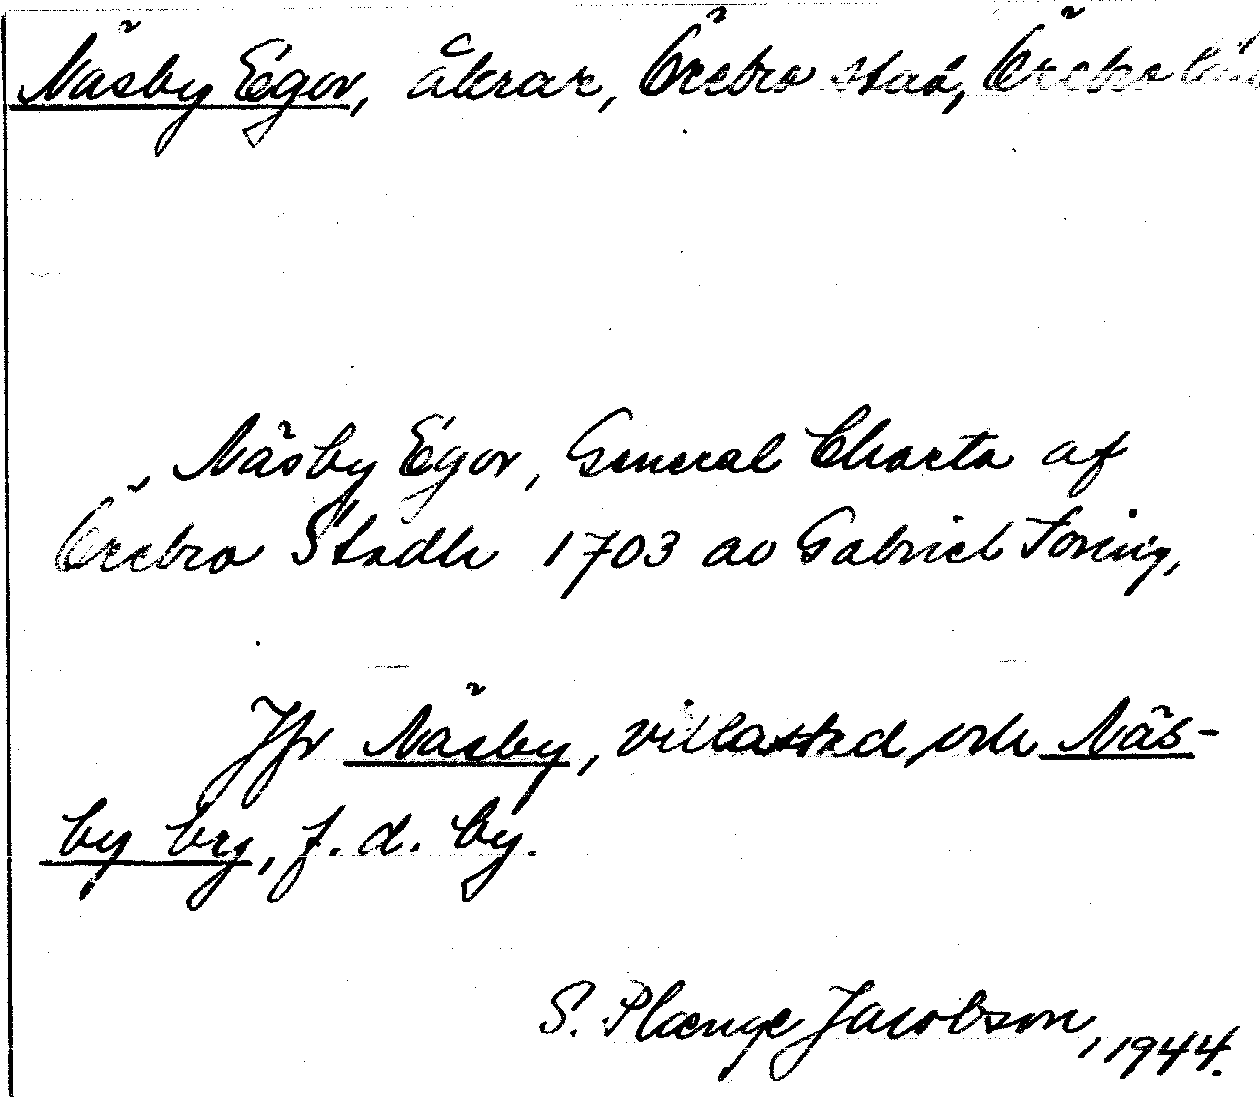 Näsby Egor, åkrar, Örebro stad, Örebro län
Näsby Egor, General Charta af
Örebro Stadh 1703 av Gabriel Toring,
Jfr Näsby, villastad och Näs-
by by, f.d. by.
S. Plænge Jacobson, 1944.